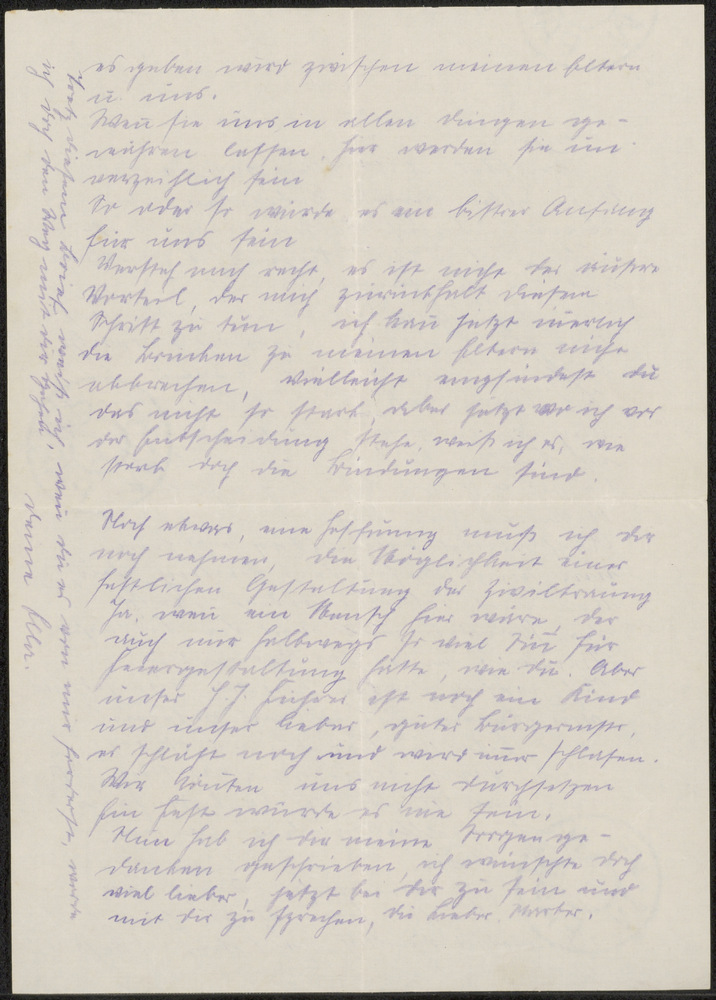 es geben wird zwischen meinen Eltern
u. uns.
Wen̄ sie uns in allen Dingen ge-
währen lassen, hier werden sie un
verzeihlich sein
So oder so würde es ein bittrer Anfang
für uns sein
Versteh mich recht, es ist nicht der äußere
Vorteil, der mich zurückhält diesen
Schritt zu tun, ich kan̄ jetzt innerlich
die Brücken zu meinen Eltern nicht
abbrechen, vielleicht empfindest du
das nicht so stark aber jetzt wo ich vor
der Entscheidung stehe, weiß ich es, wie
stark doch die Bindungen sind.
Noch etwas, eine Hoffnung muß ich dir
noch nehmen, die Möglichkeit einer
festlichen Gestaltung der Ziviltrauung
Ja, wen̄ ein Mensch hier wäre, der
auch nur halbwegs so viel Sin̄ für
Feiergestaltung hätte, wie du. Aber
unser H.J. Führer ist noch ein Kind
und unser lieber, guter Bürgermstr,
er schläft noch und wird im̄er schlafen.
Wir kön̄ten uns nicht durchsetzen
Ein Fest würde es nie sein.
Nun hab ich dir meine Sorgenge-
danken geschrieben, ich wünschte doch
viel lieber, jetzt bei dir zu sein und
mit dir zu sprechen, du lieber Walter.
Trotz diesem Brief weiß ich, wen̄ du es von mir forderst, würde
ich doch den Weg mit dir gehen.
Deine Ellen